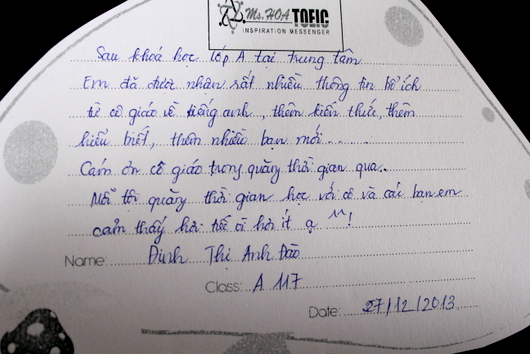 Ms. HOA TOEIC
INSPIRATION MESSENGER
Sau khoá học lớp A tại trung tâm
Em đã được nhận rất nhiều thông tin bổ ích
từ cô giáo về tiếng anh, thêm kiến thức, thêm
hiểu biết, thêm nhiều bạn mới......
Cám ơn cô giáo trong quãng thời gian qua..
Mỗi tội quãng thời gian học với cô và các bạn em
cảm thấy hơi ít ạ ^^!
Name: Đinh Thị Anh Đào
Class: A 117
Date: 27/12/2013